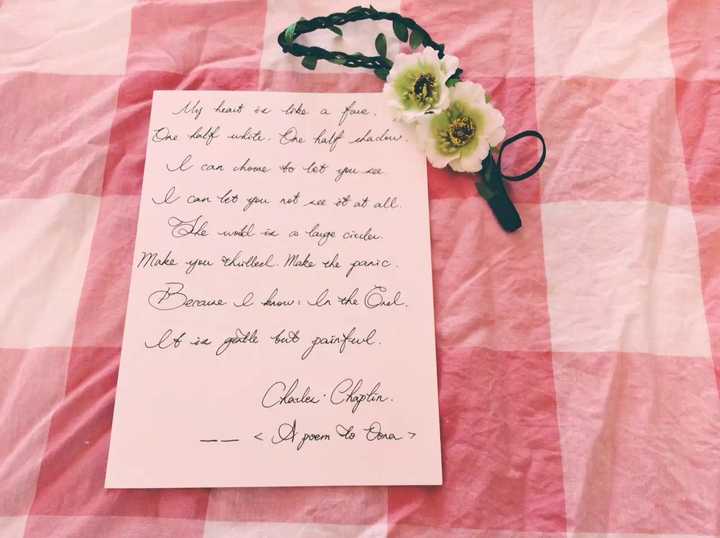 My heart is like a face.
One half white. One half shadow.
I can choose to let you see
I can let you not see it at all.
The world is a large circler.
Make you thrilled. Make the panic.
Because I know: In the End.
It is gentle but painful.
Charles·Chaplin.
—— < A poem to Oona >